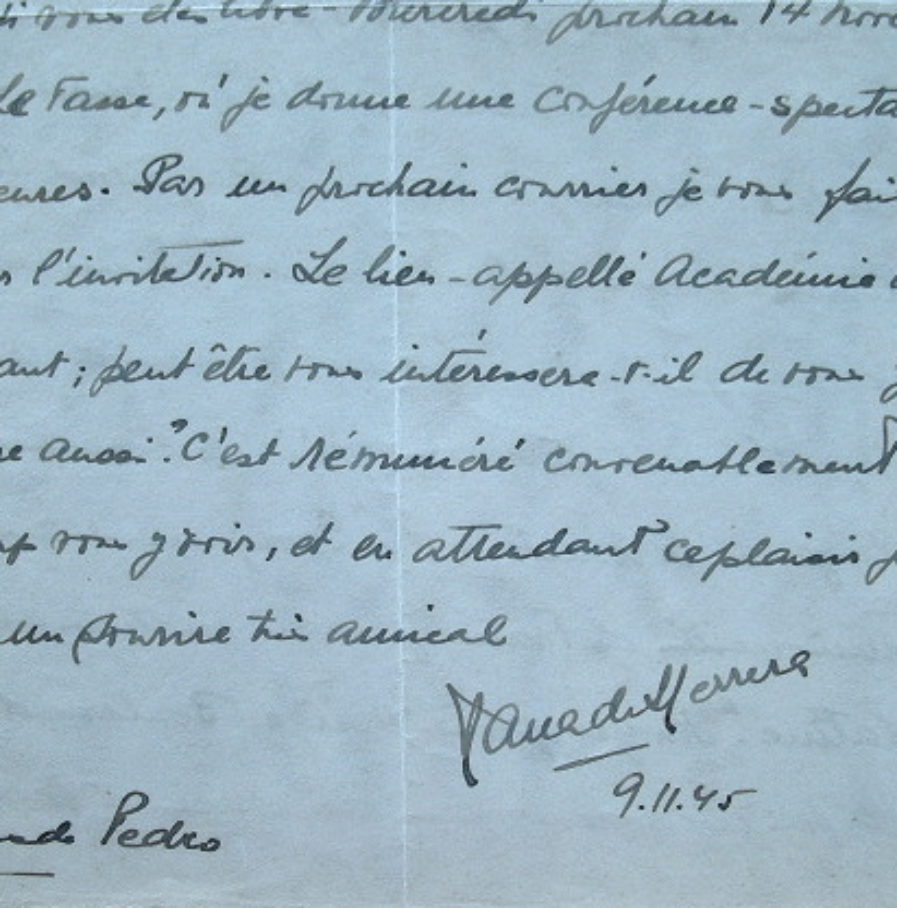 si vous êtes libre - Mercredi prochain 14 nov
Le Tasse, où je donne une Conférence - specta
eures. Par un prochain courrier je vous fai
l'invitation. Le lieu - appellé Académie
ant ; peut être vous intéressera-t-il de vous
aussi ? C'est rémunéré convenablement
vous y voir, et en attendant ce plaisir
un sourire très amical
de Herrera
9.11.45
Pedro